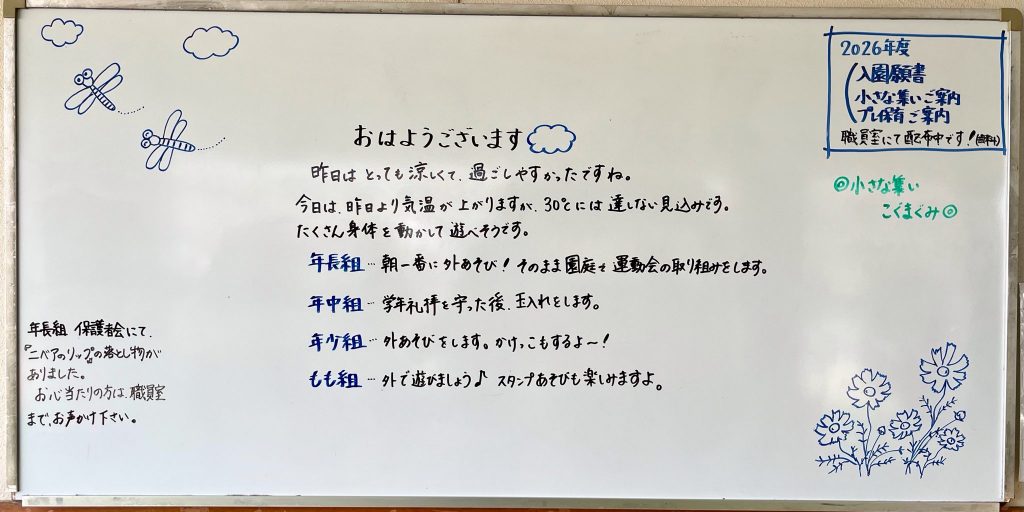 おはようございます
昨日は とっても 涼しくて、過ごしやすかったですね。
今日は、昨日より 気温が 上がりますが、30℃には 達しない見込みです。
たくさん 身体を 動かして 遊べそうです。
年長組…朝一番に 外あそび! そのまま 園庭で 運動会の取り組みをします。
年中組…学年礼拝を守った後、玉入れをします。
年少組…外あそびをします。かけっこもするよ〜!
もも組…外で遊びましょう♪ スタンプあそびも楽しみますよ。
年長組 保護者会にて、
『ニベアのリップ』の落とし物が
ありました。
お心当たりの方は、職員室
まで、お声かけ下さい。
2026年度
入園願書
小さな集いご案内
プレ保育ご案内
職員室にて配布中です!(無料)
◎小さな集い
こぐまぐみ◎